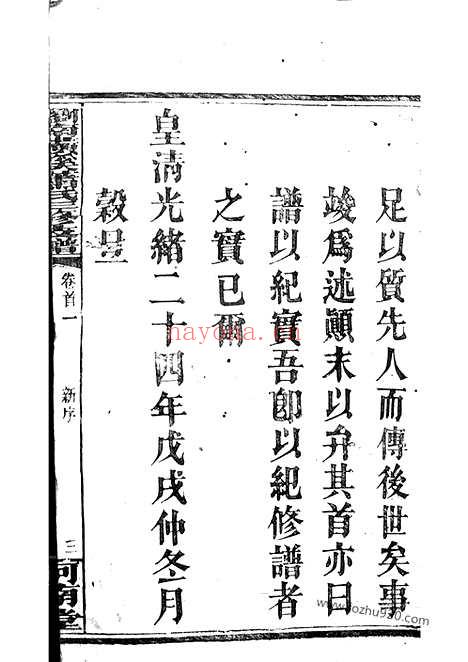 足以質先人而傳後世矣事
竣爲述顚末以弁其首亦曰
譜以紀實吾卽以紀修譜者
之實已爾
皇清光緒二十四年戊戌仲冬月
穀旦
卷首一
新序
三
河南堂
nayona.cn
www.lozhu920.com